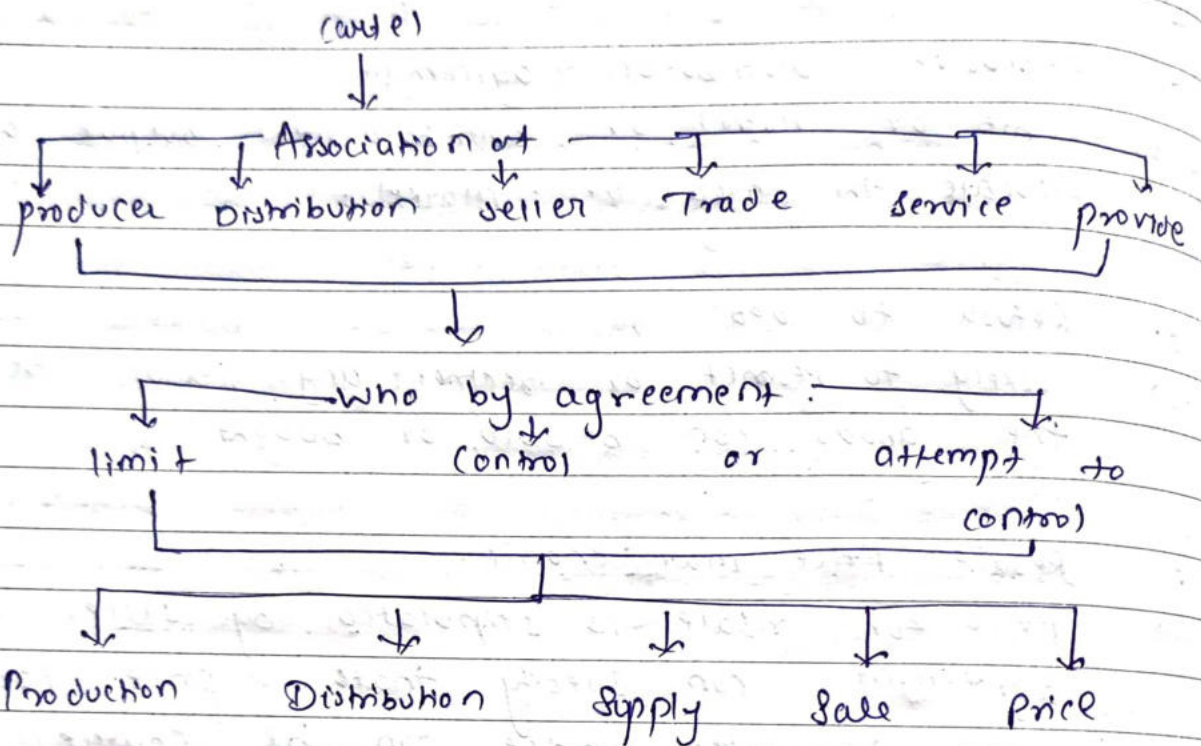 Cartel
Association of
producer Distribution seller Trade service provide
who by agreement :
limit control or attempt to
control
Production Distribution Supply Sale Price